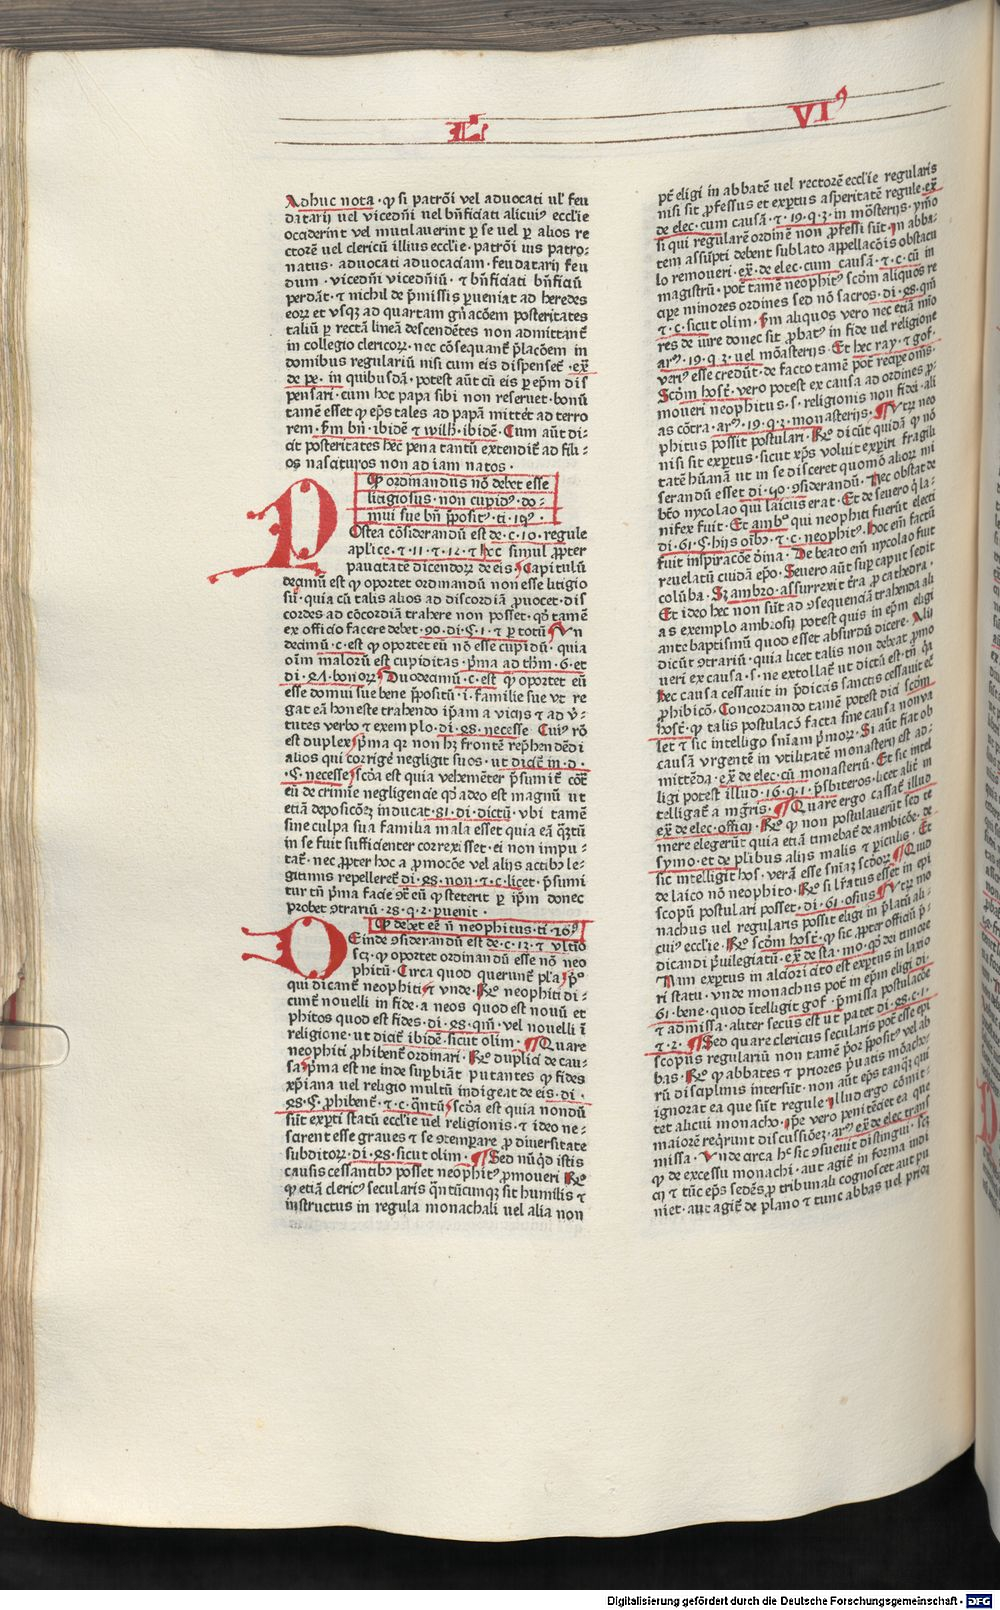 L
VIꝰ
Adhuc nota · ꝙ si patrōi vel aduocati ul' feu
datarij uel vicedn̄i uel bn̄ficiati alicuiꝰ eccl'ie
occiderint vel mutilauerint p se uel p alios re
ctorē uel clericū illius eccl'ie · patrōi ius patro-
natus · aduocati aduocaciam · feudatarij feu
dum · vicedn̄i vicedn̄iū · ⁊ bn̄ficiati bn̄ficiū
perdāt · ⁊ nichil de p̄missis pueniat ad heredes
eoꝝ et vsqꝫ ad quartam gn̄acōem posteritates
taliū p rectā lineā descendētes non admittant̄
in collegio clericoꝝ · nec cōsequant̄ p̄lacōem in
domibus regulariū nisi cum eis dispenset̄ · ex̄
de pe · in quibusdā · potest aūt cū eis p ep̄m dis
pensari · cum hoc papa sibi non reseruet · bonū
tamē esset ꝙ ep̄s tales ad papā mittet̄ ad terro
rem · s̄m bn̄ · ibidē ⁊ willꝫ · ibidē · Cum aūt di-
cit posteritates hec pena tantū extendit̄ ad fili-
os nascituros non ad iam natos ·
Ꝙ ordinandus nō debet esse
litigiosus · non cupidꝰ · do-
mui sue bn̄ p̄positꝰ · ti · 19ꝰ ·
POstea cōsiderandū est de · c · 10 · regule
aplice · ⁊ · 11 · ⁊ · 12 · ⁊ hec simul ꝓpter
paucitatē dicendoꝝ de eis · Capitulū
decimū est ꝙ oportet ordinandū non esse litigio
sū · quia cū talis alios ad discordiā ꝓuocet · dis
cordes ad cōcordiā trahere non posset · qd̄ tamē
ex officio facere debet · 90 · di · C · 1 · ⁊ p totū Vn
decimū · c · est ꝙ oportet eū nō esse cupidū · quia
oīm maloꝝ est cupiditas · p̄ma ad thm̄ · 6 · et
di · 24 · bonoꝝ Duodecimū · c · est ꝙ oportet eū
esse domui sue bene p̄positū · i · familie sue vt re
gat eā honeste trahendo ip̄am a vicijs ⁊ ad v̄-
tutes verbo ⁊ exemplo · di · 28 · necesse Cuiꝰ rō
est duplex p̄ma qꝛ non hꝫ frontē rep̄hendēdi
alios qui corrige negligit suos · ut dicit̄ in · d ·
· C · necesse scd̄a est quia vehemēter p̄sumit̄ cōt̄
eū de crimie negligencie qd̄ adeo est magnū ut
etiā deposicōeꝫ inducat · 81 · di · dictū · vbi tamē
sine culpa sua familia mala esset quia eā q̄ꝫtū
in se fuit sufficienter correxisset · ei non impu-
tat̄ · nec ꝓpter hoc a ꝓmocōe vel alijs actibꝫ le-
gitimis repelleret̄ di · 28 · non · ⁊ · c · licet · p̄sumi
tur tn̄ p̄ma facie ꝯt̄ eū ꝙ steterit p ip̄m donec
probet ꝯtrariū · 28 · q · 2 · puenit ·
Ꝙ debet eē n̄ neophitus · ti · 20ꝰ
DEinde ꝯsiderandū est de · c · 13 · ⁊ vltīo
scꝫ · ꝙ oportet ordinandū esse nō neo
phitū · Circa quod querunt̄ pl'a p̄ꝰ
qui dicant̄ neophiti ⁊ vnde · Rn̄ neophiti di-
cunt̄ nouelli in fide · a neos quod est nouū et
phitos quod est fides · di · 28 · qm̄ · vel nouelli ī
religione · ut dicit̄ ibidē · sicut olim · ¶ Quare
neophiti ꝓhibent̄ ordinari · Rn̄ duplici de cau-
sa p̄ma est ne inde supbiāt putantes ꝙ fides
xp̄iana uel religio multū indigeat de eis · di ·
28 · C · ꝓhibent̄ · ⁊ · c · q̄ntū scd̄a est quia nondū
sūt expti statū eccl'ie uel religionis · ⁊ ideo ne-
scirent esse graues ⁊ se ꝯtempare ꝓ diuersitate
subditoꝝ · di · 28 · sicut olim · ¶ Sed nūqd̄ istis
causis cessantibꝫ posset neophitꝰ ꝓmoueri Rn̄
ꝙ etiā clericꝰ secularis q̄ntūcumqꝫ sit humilis ⁊
instructus in regula monachali uel alia non
pt̄ eligi in abbatē uel rectorē eccl'ie regularis
nisi sit ꝓfessus et exptus asperitatē regule · ex̄
de elec · cum causā · ⁊ · 19 · q · 3 · in mōsterijs · ymo
si qui regularē ordinē non ꝓfessi sūt in abba-
tem assūpti debent sublato appellacōis obstacu
lo remoueri · ex̄ · de elec · cum causā · ⁊ · c · cū in
magistrū · pot̄ tamē neophitꝰ scd̄m aliquos re
cipe minores ordines sed nō sacros · di · 28 · qm̄
⁊ · c · sicut olim · s̄m aliquos vero nec etiā mīo
res de iure donec sit ꝓbatꝰ in fide uel religione
arꝰ · 19 · q · 3 · uel mōasterijs · Et hec ray · ⁊ gof ·
veriꝰ esse credūt · de facto tamē pot̄ recipe om̄s ·
Scd̄m host̄ · vero potest ex causa ad ordines ꝓ-
moueri neophitus · s · religionis non fidei · ali
as cōtra · arꝰ · 19 · q · 3 · monasterijs · ¶ Vtꝝ neo
phitus possit postulari · Rn̄ dicūt quidā ꝙ nō
nisi sit exptus · sicut xp̄s voluit expiri fragili
tatē hūanā ut in se disceret quomō alioꝝ mi
serandū esset di · 50 · ꝯsiderandū · Nec obstat de
bt̄o nycolao qui laicus erat · Et de seuero q̄ la-
nifex fuit · Et ambꝰ qui neophiti fuerūt electi
di · 61 · C · hijs oībꝫ · ⁊ · c · neophitꝰ · hoc em̄ factū
fuit inspiracōe diuina · De beato em̄ nycolao fuit
reuelatū cuidā epō · Seuero aūt sup caput sedit
colūba · Sꝫ ambro · assurrexit t̄ra ꝓ cathedra ·
Et ideo hec non sūt ad ꝯsequenciā trahenda ali
as exemplo ambrosij potest quis in ep̄m eligi
ante baptismū quod esset absurdū dicere · Alij
dicūt ꝯtrariū · quia licet talis non debeat ꝓmo
ueri ex causa · s · ne extollat̄ ut dictū est · tn̄ q̄i
hec causa cessauit in p̄dictis sanctis cessauit ec̄
ꝓhibicō · Concordando tamē potest dici scd̄m
host̄ · ꝙ talis postulacō facta sine causa non va
let ⁊ sic intelligo sn̄iam p̄moꝝ · Si aūt fiat ob
causā vrgentē in vtilitatē monasterij est ad-
mittēda · ex̄ · de elec · cū monasteriū · Et sic intel
ligi potest illud · 16 · q · 1 · p̄sbiteros · licet alit̄ in
telligat̄ a mg̃ris · ¶ Quare ergo cassat̄ illud
ex̄ · de elec · officij · Rn̄ ꝙ non postulauerūt sed te
mere elegerūt quia etiā timebat̄ de ambicōe · de
symo · et de plibus alijs malis ⁊ piculis · Et
sic intelligit hos · verā esse sn̄iaꝫ scd̄oꝝ ¶ Quid
de laico nō neophito · Rn̄ si lit̄atus esset in epi
scopū postulari posset · di · 61 · osius ¶ Vtꝝ mo
nachus uel regularis possit eligi in p̄latū ali-
cuiꝰ eccl'ie · Rn̄ scd̄m host̄ · ꝙ sic ꝓpter officiū p̄-
dicandi p̄uilegiatū · ex̄ de sta · mo · qd̄ dei timore
Nam exptus in alciori cito est exptus in laxio
ri statu · vnde monachus pot̄ in ep̄m eligi di ·
61 · bene · quod īntelligit gof · p̄missa postulacōe
⁊ admissa · aliter secus est ut patet di · 28 · c · 1 ·
⁊ · 2 · ¶ Sed quare clericus secularis pot̄ esse epi
scopus regulariū non tamē p̄or p̄positꝰ vel ab
bas · Rn̄ ꝙ abbates ⁊ priores p̄uatis mōacho-
rū disciplinis intersūt · non aūt ep̄s tanqꝫ qui
ignorat ea que sūt regule illud ergo cōmit-
tet alicui monacho · ip̄e vero penitēciet ea que
maiorē req̄runt discussiōeꝫ · arꝰ ex̄ de elec trans
missa · Vnde circa h̄c sic ꝯsueuit distingui · scꝫ
ꝙ de excessu monachi · aut agit̄ in forma iudi
cij ⁊ tūc ep̄s sedēs ꝓ tribunali cognoscet aut pu
niet · aut agit̄ de plano ⁊ tunc abbas uel prior
Digitalisierung gefördert durch die Deutsche Forschungsgemeinschaft · DFG